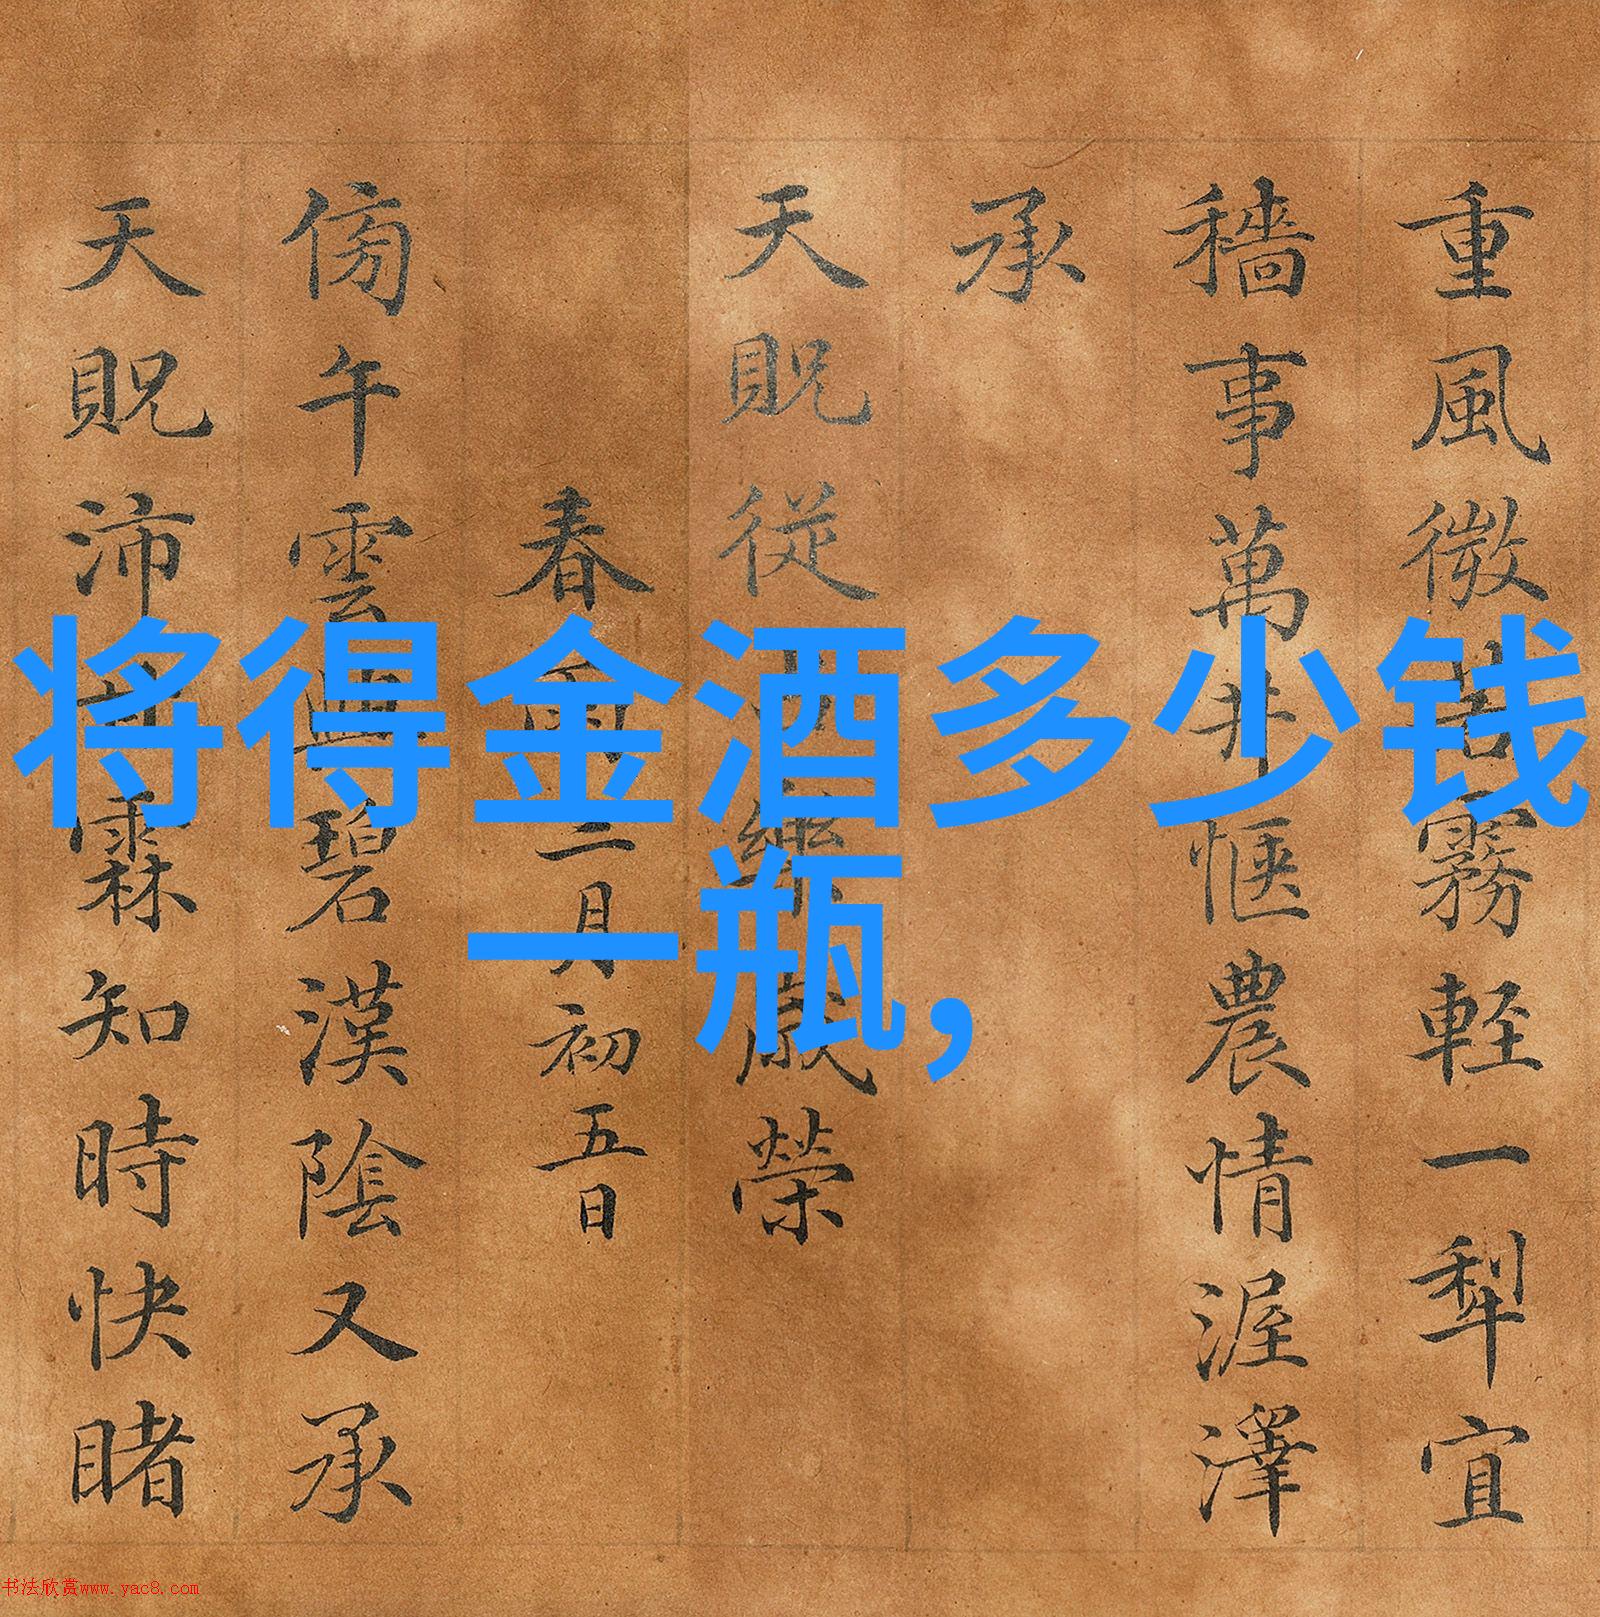 将得金酒多少钱
一瓶,
重風微苦霧輕一犁宜
穡事萬井愜農情渥澤
承
天貺從歲榮
春雨二月初五日
傍午雲碧漢陰又承
天貺沛甘霖知時快睹
书法欣赏www.yac8.com